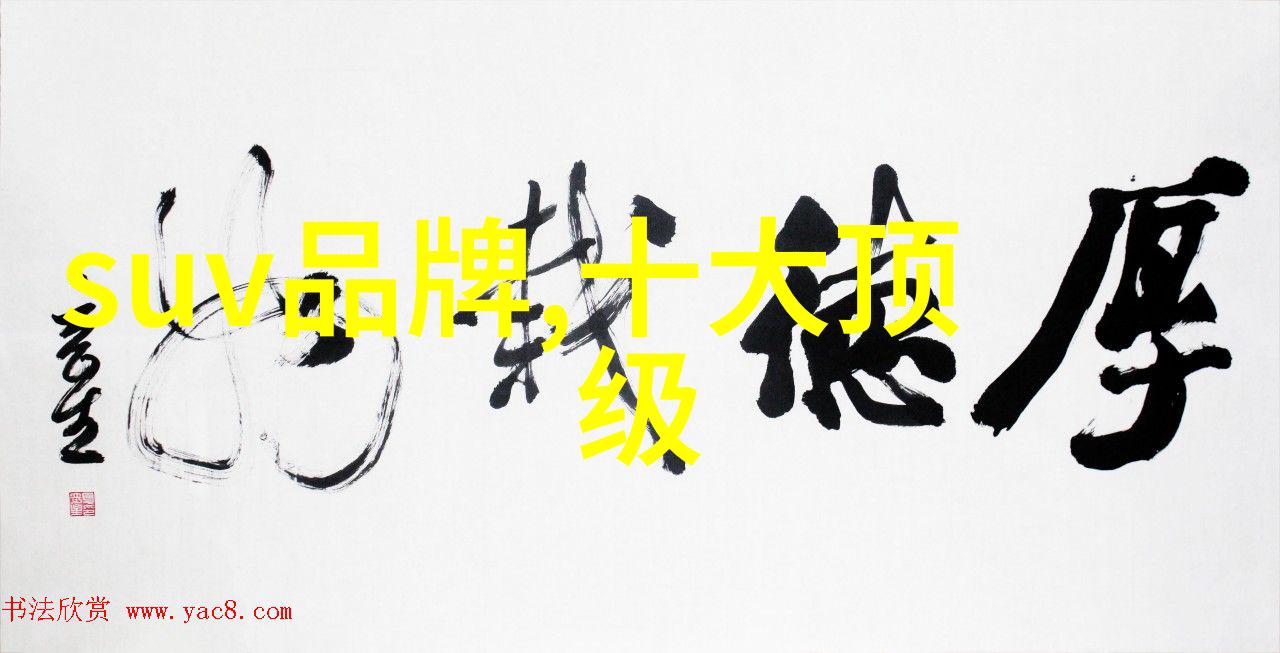 suv品牌,十大顶
级
厚德载物
书法欣赏 www.yac8.com